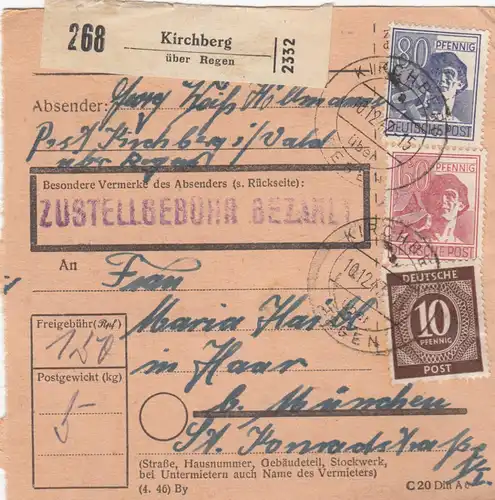 268
Kirchberg
über Regen
2332
80 PFENNIG
DEUTSCHE POST
Absender:
Post Kirchberg i/Wald
über Regen
Besondere Vermerke des Absenders (s. Rückseite):
ZUSTELLGEBÜHR BEZAHLT
60 PFENNIG
DEUTSCHE POST
KIRCHBERG
10.12.47
REGEN
An
Frau
Maria
in Haar
b. München
St. Konradstraße
DEUTSCHE
10
PFENNIG
POST
Freigebühr (Rpf)
150
Postgewicht (kg)
5
(Straße, Hausnummer, Gebäudeteil, Stockwerk,
bei Untermietern auch Name des Vermieters)
(4. 46) By
C 20 Din A